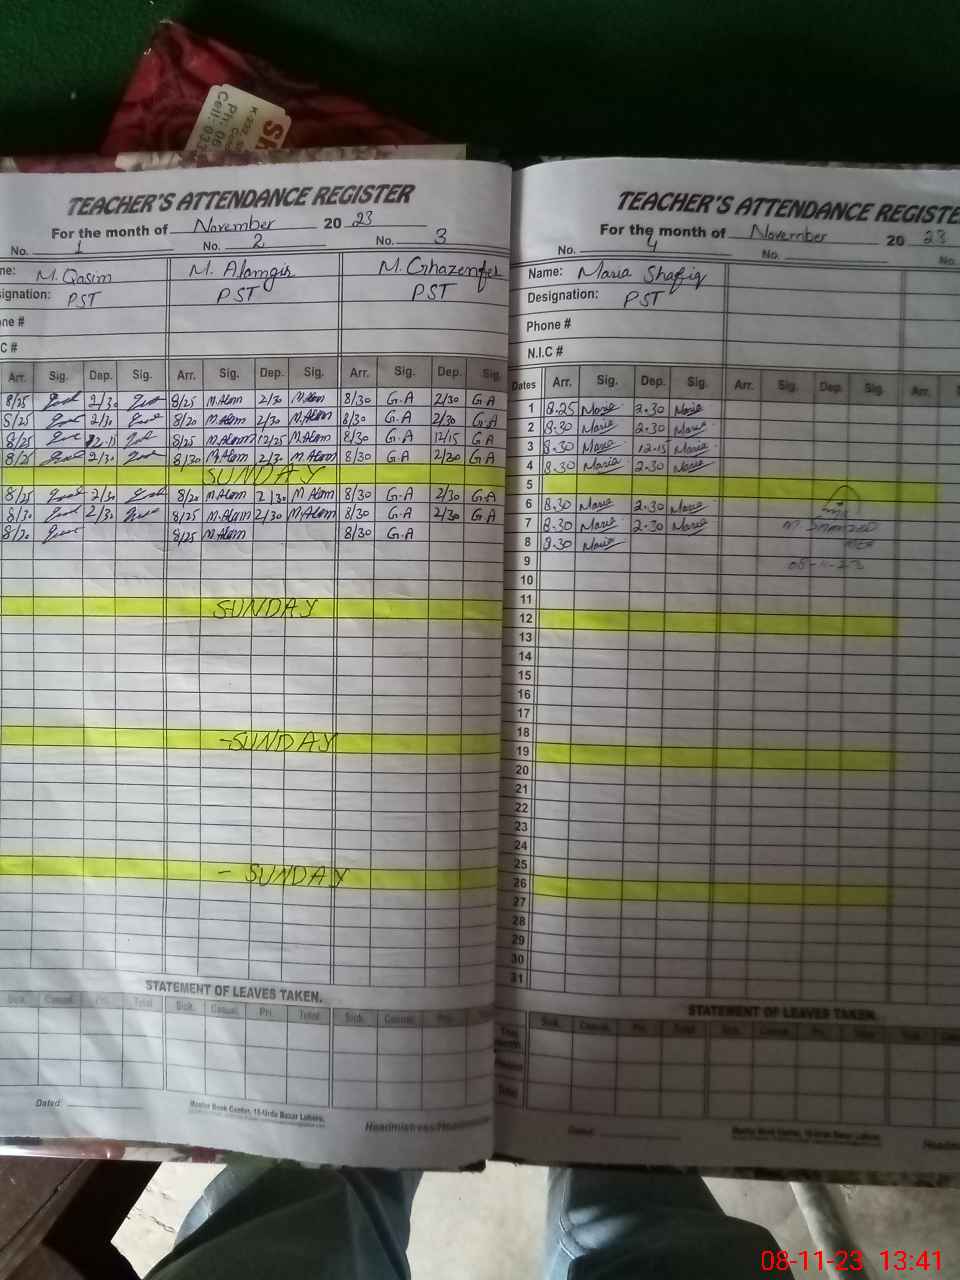 SH
K-232,
Ph: 06
Cell: 033
TEACHER'S ATTENDANCE REGISTER
For the month of November 20 23
No. 1 No. 2 No. 3
ne: M. Qasim M. Alamgir M. Ghazenfer
signation: PST PST PST
one #
C #
Arr. Sig. Dep. Sig. Arr. Sig. Dep. Sig. Arr. Sig. Dep. Sig.
8/25 2/30 8/25 M.Alam 2/30 M.Alam 8/30 G.A 2/30 G.A
8/25 2/30 8/20 M.Alam 2/30 M.Alam 8/30 G.A 2/30 G.A
8/25 12.15 8/25 M.Alam 12/25 M.Alam 8/30 G.A 12/15 G.A
8/25 2/30 8/30 M.Alam 2/30 M.Alam 8/30 G.A 2/30 G.A
SUNDAY
8/25 2/30 8/20 M.Alam 2/30 M.Alam 8/30 G.A 2/30 G.A
8/30 2/30 8/25 M.Alam 2/30 M.Alam 8/30 G.A 2/30 G.A
8/25 M.Alam 8/30 G.A
SUNDAY
-SUNDAY
- SUNDAY
STATEMENT OF LEAVES TAKEN.
Sick. Casual. Pri. Total Sick. Casual. Pri. Total Sick. Casual.
Dated:
Master Book Center, 15-Urdu Bazar Lahore,
Headmistress/Headmaster
TEACHER'S ATTENDANCE REGISTE
For the month of November 20 23
No. 4 No. No.
Name: Maria Shafiq
Designation: PST
Phone #
N.I.C #
Dates Arr. Sig. Dep. Sig. Arr. Sig. Dep. Sig. Arr.
1 8.25 Maria 2.30 Maria
2 8.30 Maria 2.30 Maria
3 8.30 Maria 12.15 Maria
4 8.30 Maria 2.30 Maria
5
6 8.30 Maria 2.30 Maria
7 8.30 Maria 2.30 Maria
8 8.30 Maria
9 08-11-23
10
11
12
13
14
15
16
17
18
19
20
21
22
23
24
25
26
27
28
29
30
31
STATEMENT OF LEAVES TAKEN.
Sick. Casual. Pri. Total Sick. Casual. Pri.
Total
Dated:
Master Book Center, 15-Urdu Bazar Lahore,
Headm
08-11-23 13:41